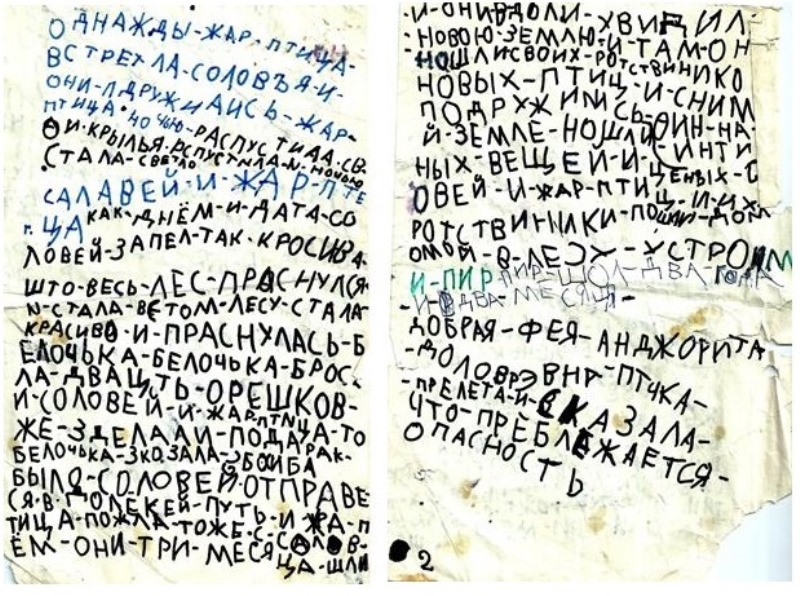 ОДНАЖДЫ-ЖАР-ПТИЦА-
ВСТРЕТЛА-СОЛОВЪЯ-И-
ОНИ-ПДРУЖИАИСЬ-ЖАР-
ПТИЦА-НОЧЬЮ-РАСПУСТИЛА-СВ-
ОИ-КРЫЛЬЯ-РСПУСТИЛА-И-НОЧЬЮ
СТАЛА-СВЕТЛО
САЛАВЕЙ-И-ЖАР-ПТЕ
ЦА КАК-ДНЁМ-И-ДАТА-СО
ЛОВЕЙ-ЗАПЕЛ-ТАК-КРОСИВА-
ШТО-ВЕСЬ-ЛЕС-ПРАСНУЛСЯ-
И-СТАЛА-ВЕТОМ-ЛЕСУ-СТАЛА-
КРАСИВО-И-ПРАСНУЛАСЬ-Б
ЕЛОЧЬКА-БЕЛОЧЬКА-БРОС-
ЛА-ДВАЦЬТЬ-ОРЕШКОВ-
И-СОЛОВЕЙ-И-ЖАР-ПТИЦА-ТО
ЖЕ-ЗДЕЛАЛИ-ПОДАРАК-
БЕЛОЧЬКА-ЗКОЗАЛА-ЗБОИБА
БЫЛО-СОЛОВЕЙ-ОТПРАВЕ
СЯ-В-ГОЛЁКЕЙ-ПУТЬ-И-ЖА-П
ТИЦА-ПОЖЛА-ТОЖЕ-С-САЛОВ-
ЁМ-ОНИ-ТРИ-МЕСЯЦА-ШЛИ
-И-ОНИВДОЛИ-УВИДИЛ-
-НОВОЮ-ЗЕМЛЮ-И-ТАМ-ОН
НОШЛИСВОИХ-РОТСТВИНИКО
НОВЫХ-ПТИЦ-И-СНИМ
ПОДРУЖИЛИСЬ-ОИН-НА-
Й-ЗЕМЛЕ-НОШЛИ-ИНТИ
НЫХ-ВЕЩЕЙ-И-ЦЕНЫХ-С
ОВЕЙ-И-ЖАР-ПТИЦ-И-ИХ-
РОТСТВИНИКИ-ПОШЛИ-ДОМ
ОМОЙ-В-ЛЕСУ-УСТРОИМ
И-ПИР ПИР-ШОЛ-ДВА-ГОДА
-И ДВА-МЕСЯЦЯ-
-ДОБРАЯ-ФЕЯ-АНДЖОРИТА
-ДОЛОВРЭВНР-ПТЧКА-
-ПРЕЛЕТА-И-СКАЗАЛА-
ЧТО-ПРЕБЛЕЖАЕТСЯ-
ОПАСНОСТЬ
2